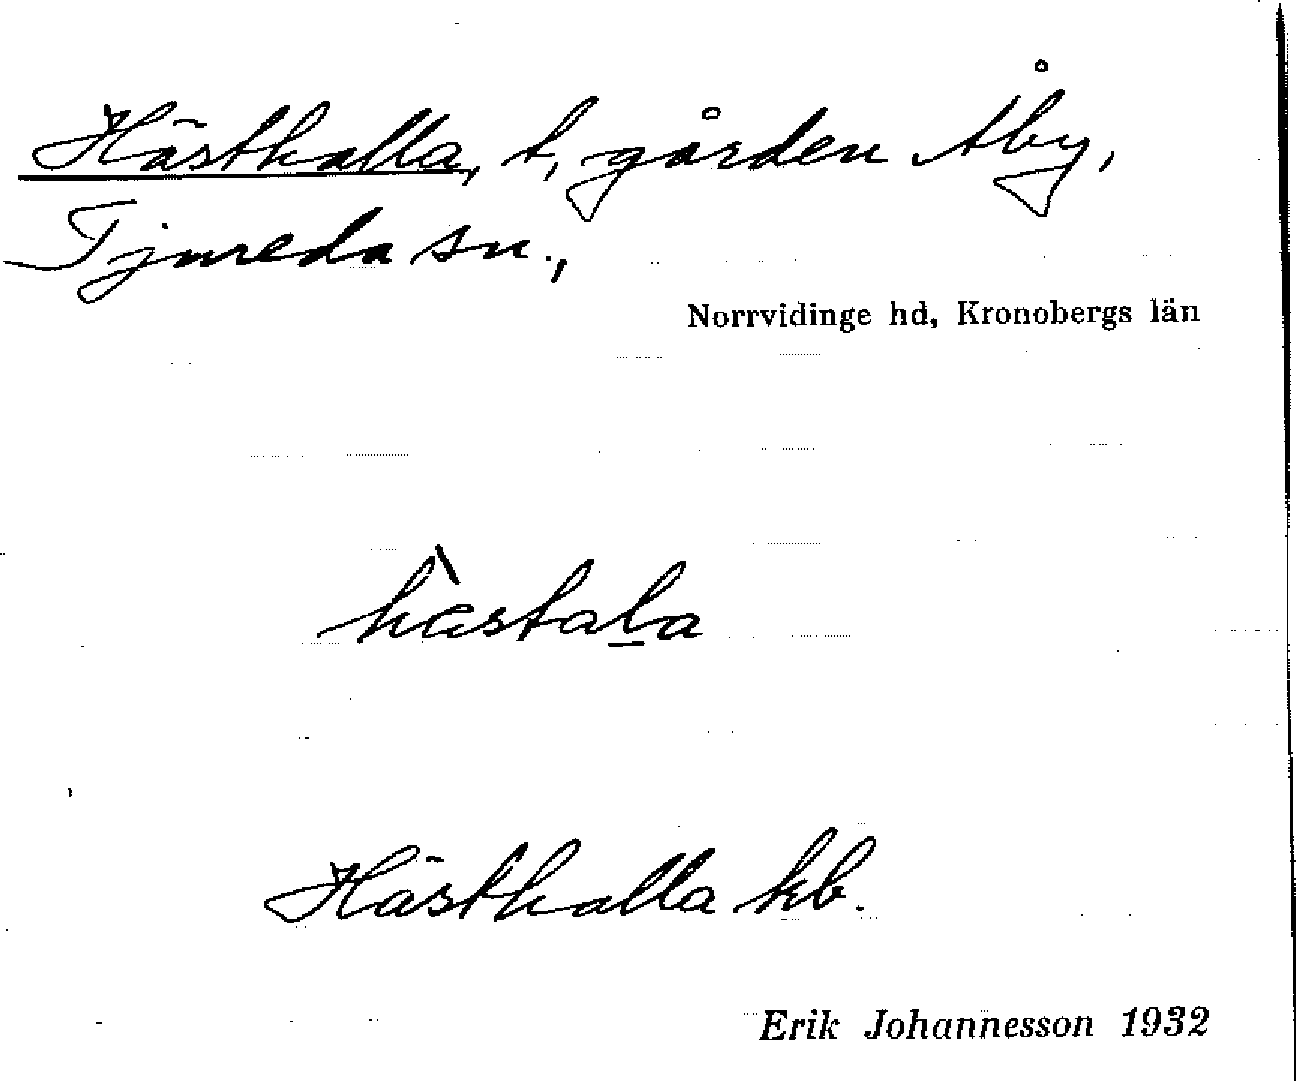 Hästhalla, t, gården Åby,
Tjureda sn.,
Norrvidinge hd, Kronobergs län
hæ̀stala
Hästhalla kb.
Erik Johannesson 1932